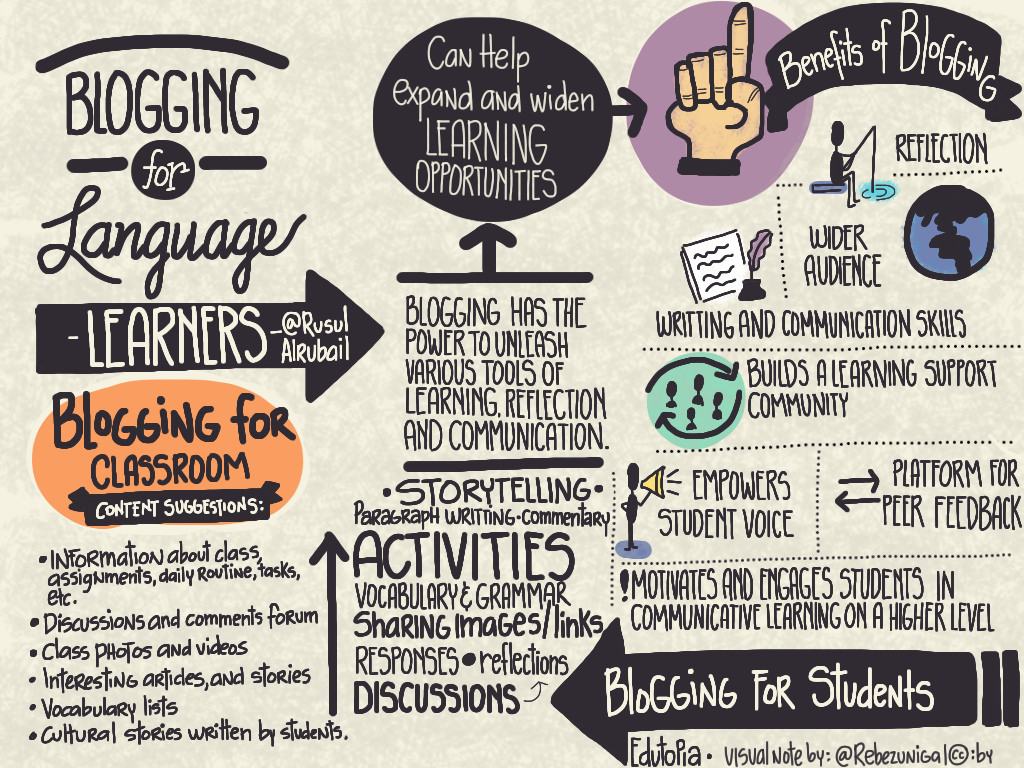 BLOGGING
for
Language
- LEARNERS - @Rusul
Alrubail
BLOGGING FOR
CLASSROOM
CONTENT SUGGESTIONS:
• INFORMATION about class,
assignments, daily Routine, tasks,
etc.
• Discussions and comments forum
• Class photos and videos
• Interesting articles, and stories
• Vocabulary lists
• Cultural stories written by students.
Can Help
expand and widen
LEARNING
OPPORTUNITIES
BLOGGING HAS THE
POWER TO UNLEASH
VARIOUS TOOLS OF
LEARNING, REFLECTION
AND COMMUNICATION.
• STORYTELLING •
Paragraph writting • commentary
ACTIVITIES
VOCABULARY & GRAMMAR
SHARING Images/links
RESPONSES • reflections
DISCUSSIONS
Benefits of Blogging
REFLECTION
WIDER
AUDIENCE
WRITTING AND COMMUNICATION SKILLS
BUILDS A LEARNING SUPPORT
COMMUNITY
EMPOWERS
STUDENT VOICE
PLATFORM FOR
PEER FEEDBACK
! MOTIVATES AND ENGAGES STUDENTS IN
COMMUNICATIVE LEARNING ON A HIGHER LEVEL
Blogging For Students
Edutopia • Visual Note by: @Rebezuniga | cc : by